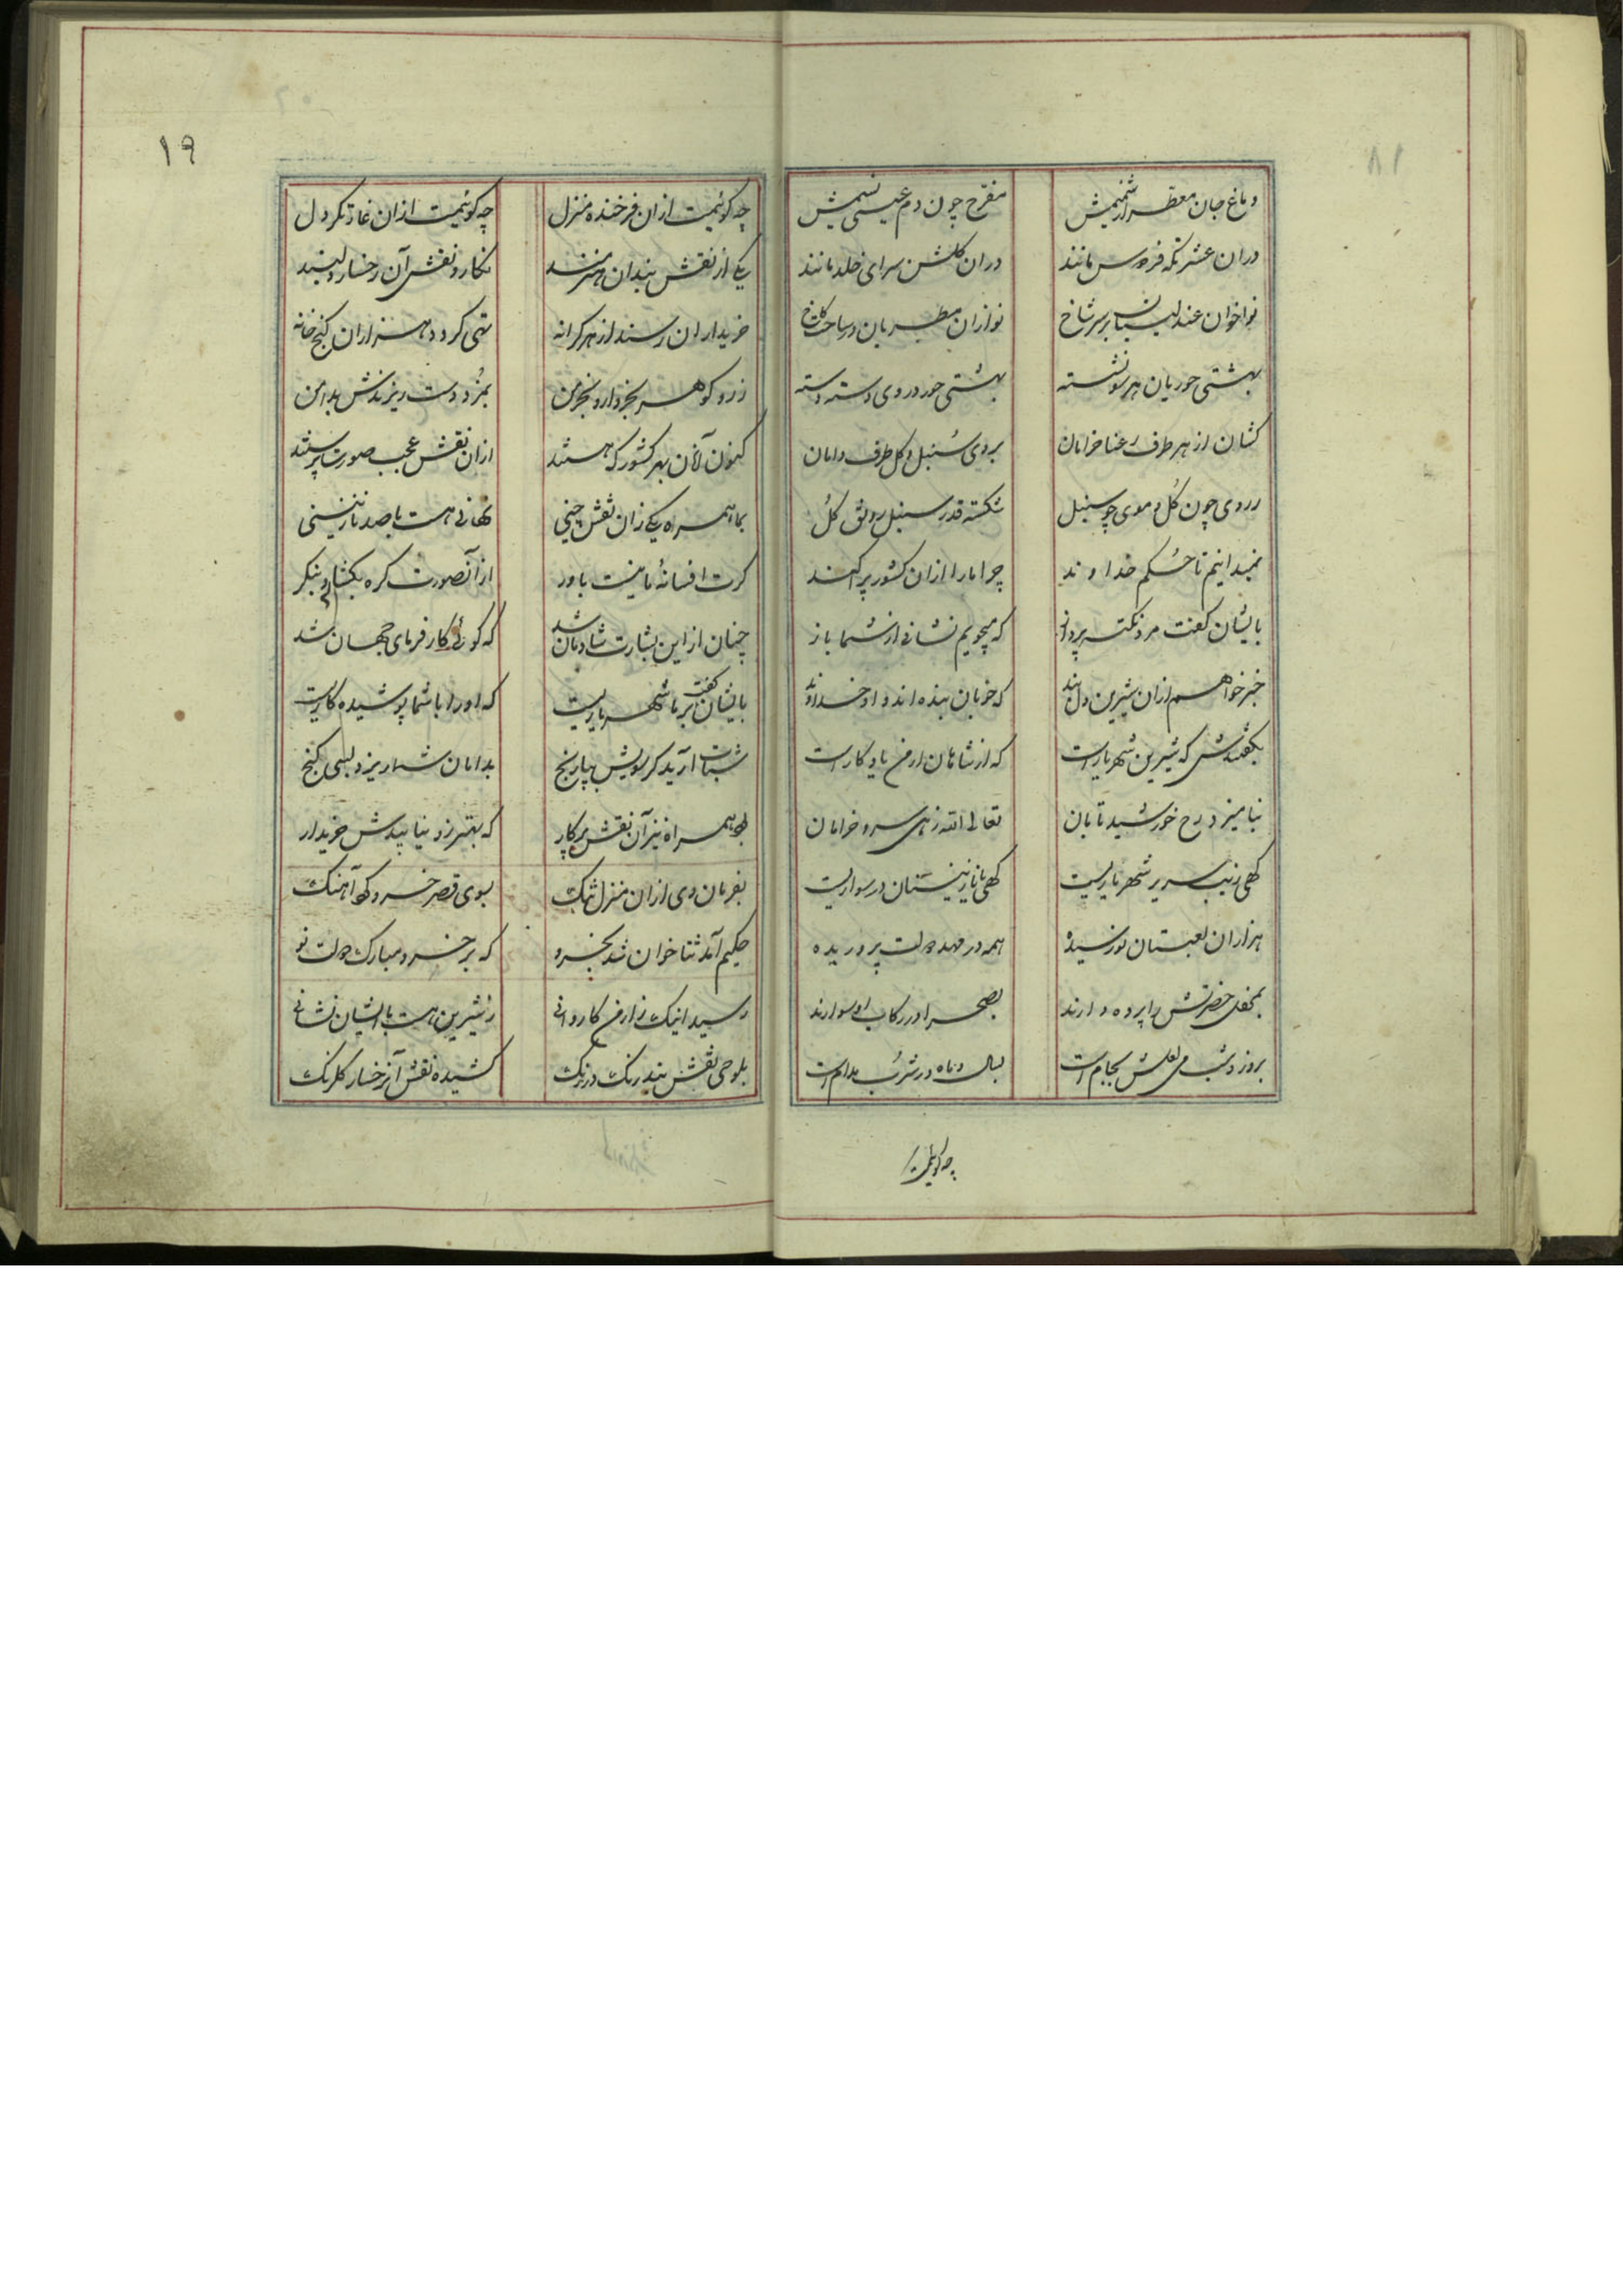 دماغ جان معطر از شمیمش مفرح چون دم عیسی نسیمش
دران عشرتکه فردوس مانند دران کلشن سرای خلد مانند
نواخوان عندلیبان بر سر شاخ نوازان مطربان در ساحت کاخ
بهشتی حوریان هر سو نشسته بهشتی حور در وی دسته دسته
کشان از هر طرف رعنا خرامان بروی سنبل و کل طرف دامان
ز روی چون کل و موی چو سنبل شکسته قدر سنبل رونق کل
نمیدانیم تا حکم خداوند چرا ما را ازان کشور پراکند
بایشان کفت مرد نکته پرداز که میجویم نشانی از شما باز
خبر خواهم ازان شیرین دلبند که خوبان بنده اند و او خداوند
بکفتندش که شیرین شهریار است که از شاهان ارمن یادکار است
نیامیزد رخ خورشید تابان تعالی الله زهی سرو خرامان
کهی زیب سریر شهریاریست کهی با نازنینستان در سواریست
هزاران لعبتان نورسیده همه در مهد دولت پروریده
بمحفل حضرتش را پرده دارند بصحرا در رکاب او سوارند
بروز و شب می لعلش بجام است بسال و ماه در شرب مدام است
چه کویمت
۱۹
چه کوئیمت ازان فرخنده منزل چه کوئیمت ازان غارتکر دل
یکی از نقش بندان هنرمند نکارد نقش آن رخسار دلبند
خریداران رسند از هر کرانه تهی کردد هزاران کنج خانه
زر و کوهر بخروار و بخرمن بمزد دست ریزندش بدامن
کنون آنان بهر کشور که هستند ازان نقش عجب صورت پرستند
بما همراه یکی زان نقش چینی نهانی هست با صد نازنینی
کرت افسانهٔ ما نیست باور ازآنصورت کره بکشای و بنکر
چنان از این بشارت شادمان شد که کوئی کارفرمای جهان شد
بایشان کفت بر ما شهریاریست که او را با شما پوشیده کاریست
شتاب آرید کر سویش بپا رنج بدامان شما ریزد بسی کنج
بود همراه نیز آن نقش پرکار که بهتر زو نیابیدش خریدار
بفرمان وی ازان منزل تنک بسوی قصر خسرو کرد آهنک
حکیم آمد ثنا خوان شد بخسرو که بر خسرو مبارک دولت نو
رسید اینک ز ارمن کاروانی ز شیرین هست با ایشان نشانی
بلوحی نقش بند رنک در رنک کشیده نقش آنرخسار کلرنک